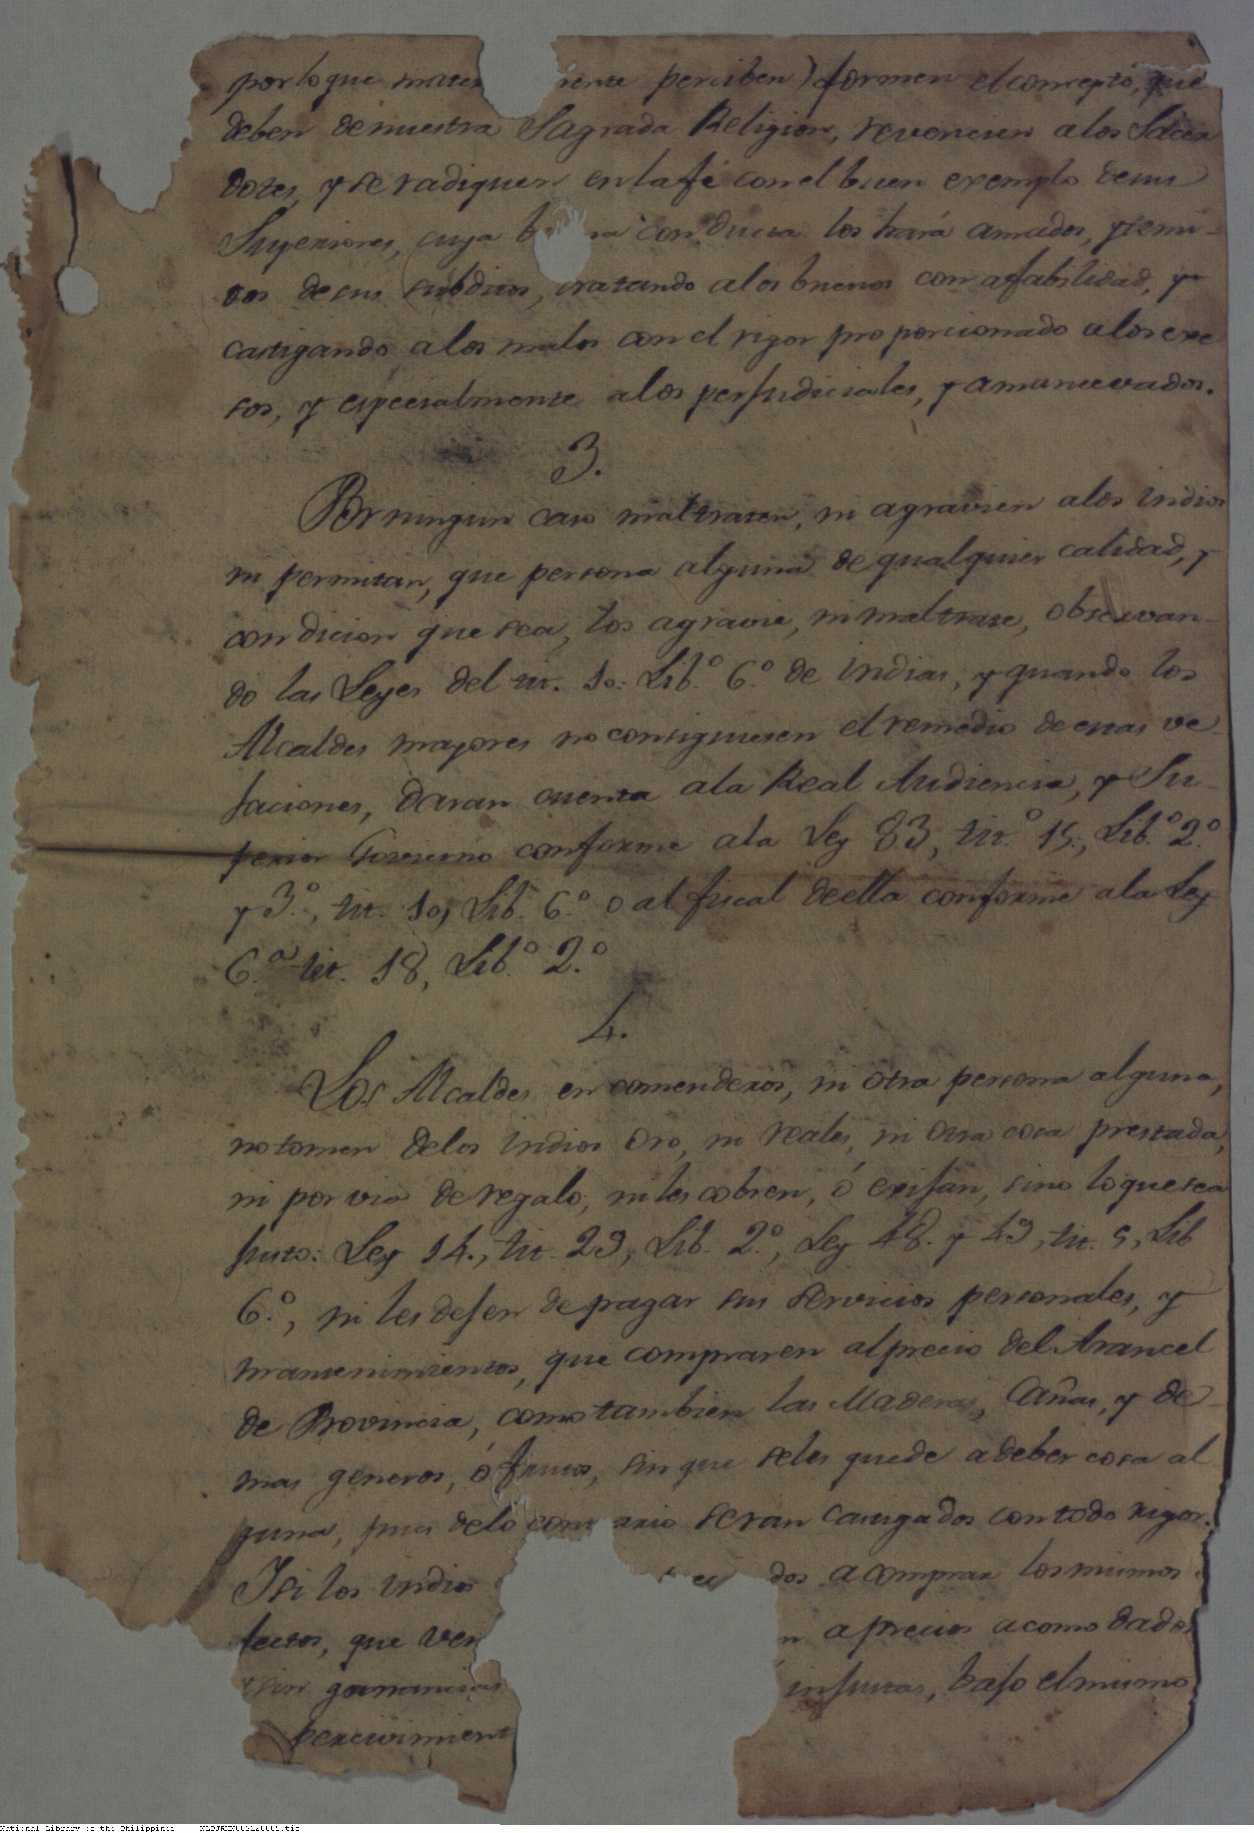 por lo que mate rente perciben) formen el concepto, que
deben de nuestra Sagrada Religion, reverencien a los Sacer
dotes, y se radiquen en la fé con el buen exemplo de sus
Superiores, cuya b na conducta los hará amados, y temi-
dos de sus subditos, tratando a los buenos con afabilidad, y
castigando a los malos con el rigor proporcionado a los exe
sos, y especialmente a los perjudiciales, y amancevados.
3.
Por ningun caso maltraten, ni agravien a los indios
ni permitan, que persona alguna de qualquier calidad, y
condicion que sea, los agravie, ni maltrate, observan-
do las Leyes del tit. 10. Lib.º 6.º de indias, y quando los
Alcaldes mayores no consiguiesen el remedio de estas ve-
jaciones, daran cuenta a la Real Audiencia, y Su-
perior Govierno conforme a la Ley 83, tit.º 15, Lib.º 2.º
y 3.º, tit. 10, Lib. 6.º o al fiscal de ella conforme a la Ley
6.ª tit. 18, Lib.º 2.º
4.
Los Alcaldes encomenderos, ni otra persona alguna,
no tomen de los indios oro, ni reales, ni otra cosa prestada,
ni por via de regalo, ni les cobren, ó exijan, sino lo que sea
justo: Ley 14., tit. 29, Lib. 2.º, Ley 48. y 49, tit. 5, Lib
6.º, ni les dejen de pagar sus servicios personales, y
mantenimientos, que compraren al precio del Arancel
de Provincia, como tambien las Maderas, Cañas, y de-
mas generos, ó frutos, sin que se les quede a deber cosa al
guna, pues de lo cont ario seran castigados con todo rigor.
Y si los indios dos a comprar los mismos
fectos, que ven n a precios acomodados
sin ganancias injustas, bajo el mismo
percivimient
National Library of the Philippines